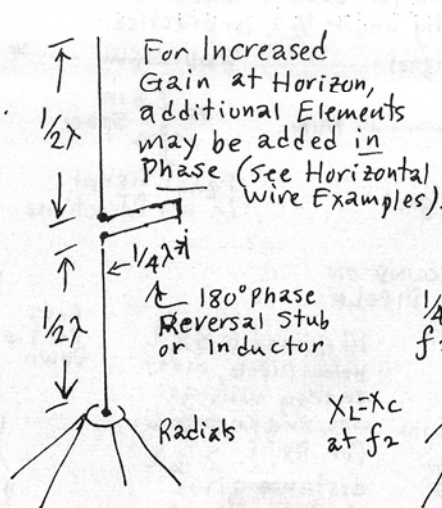 For Increased
Gain at Horizon,
additional Elements
may be added in
Phase (see Horizontal
Wire Examples).
1/2λ
1/4λ*
180° Phase
Reversal Stub
or Inductor
1/2λ
Radials
XL=Xc
at f2
1/4
f2